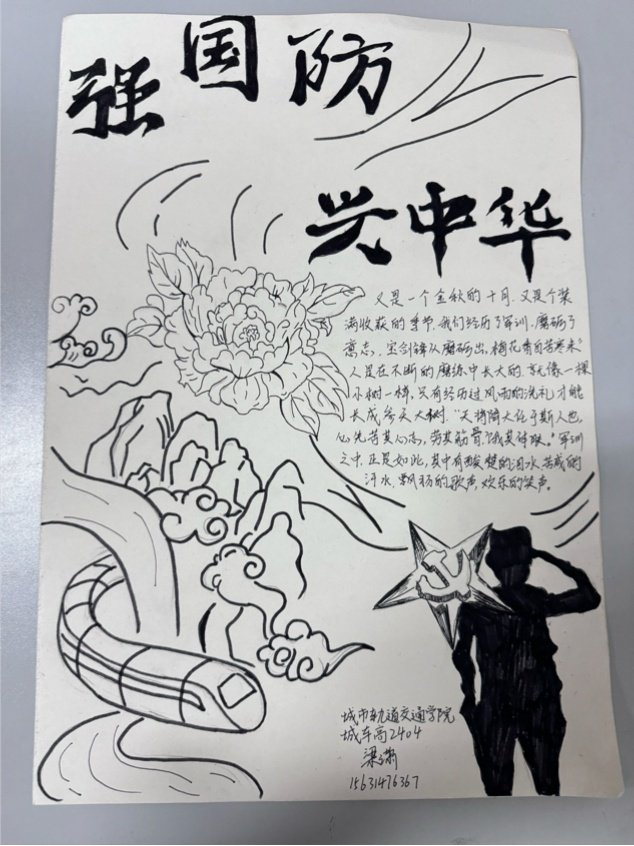 强国防
兴中华
又是一个金秋的十月,又是个装
满收获的季节,我们经历了军训,磨砺了
意志,宝剑锋从磨砺出,梅花香自苦寒来"
人是在不断的磨练中长大的就像一棵
小树一样,只有经历过风雨的洗礼才能
长成参天大树."天将降大任于斯人也,
必先苦其心志,劳其筋骨,饿其体肤。"军训
之中,正是如此,其中有酸楚的泪水,苦咸的
汗水,飘扬的歌声,欢乐的笑声。
城市轨道交通学院
城车高2404
梁
15631476367